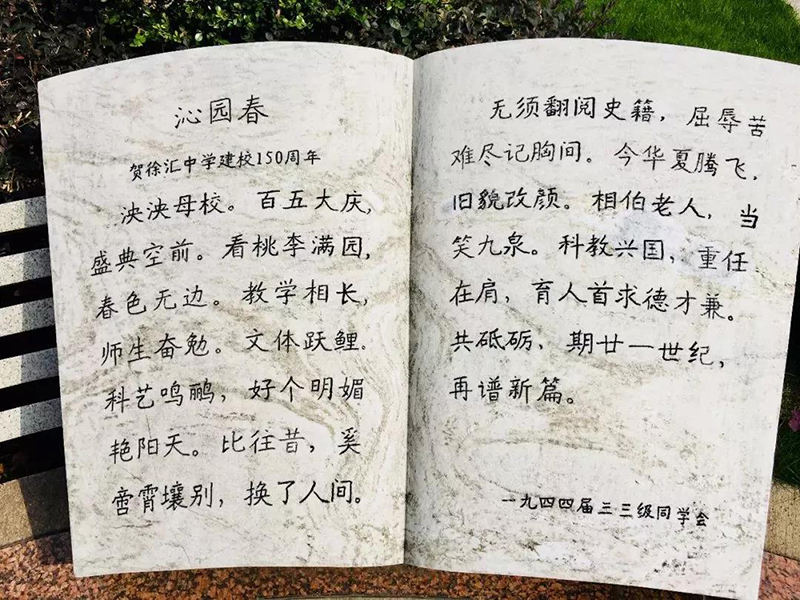 沁园春
贺徐汇中学建校150周年
泱泱母校。百五大庆，
盛典空前。看桃李满园，
春色无边。教学相长，
师生奋勉。文体跃鲤.
科艺鸣鹂，好个明媚
艳阳天。比往昔，奚
啻霄壤别，换了人间。
无须翻阅史籍，屈辱苦
难尽记胸间。今华夏腾飞，
旧貌改颜。相伯老人，当
笑九泉。科教兴国，重任
在肩，育人首求德才兼。
共砥砺，期廿一世纪，
再谱新篇。
一九四四届三三级同学会